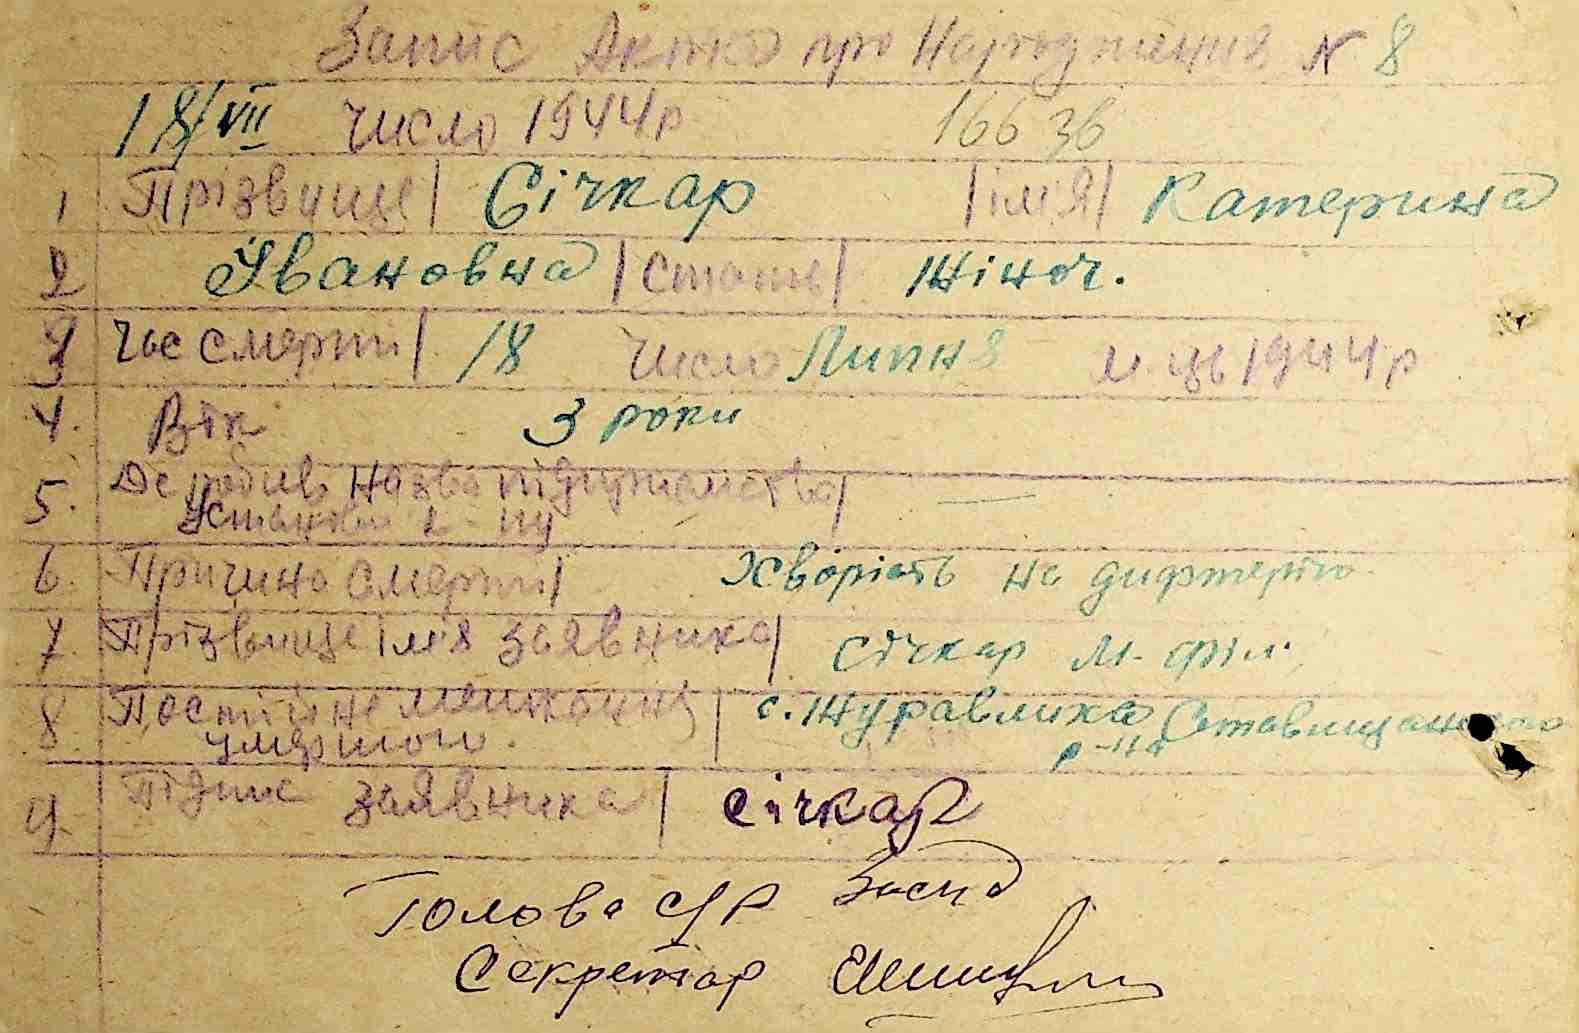 Запис Акта про Народження N 8
18/VII число 1944р 166 зв
1 Прізвище Січкар імя Катерина
2 Івановна Стать Жіноч.
3 Час смерти 18 число Липня м-ць 1944 р
4. Вік 3 роки
5. Де робив назва підприємства
Установи
6. Причина смерти Хворість на дифтерію
7. Прізвище імя заявника Січкар М. Філ.
8. Постійне умершого с. Журавлиха Ставищанського
р-на
9. Підпис заявника Січкар
Голова С/Р
Секретар